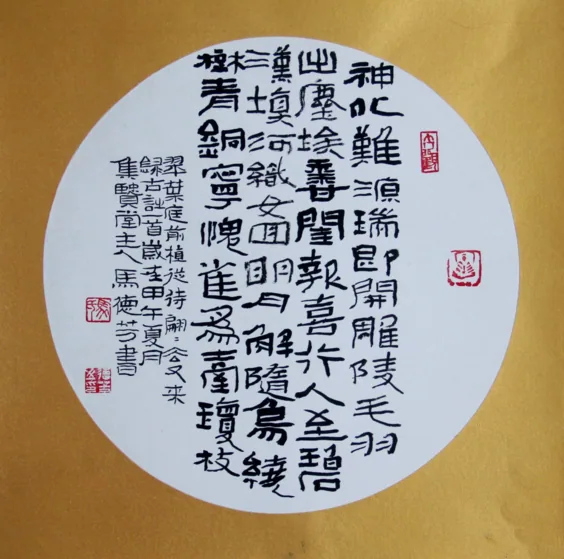 神化難源瑞即開雕陵毛羽
出塵埃香閨報喜行人至碧
漢填河織女回明月解隨烏繞
樹青銅寧愧雀為臺瓊枝
翠葉庭前植從待翩〻去又來
錄古詩一首歲在甲午夏月
集賢堂主人馬德芳書